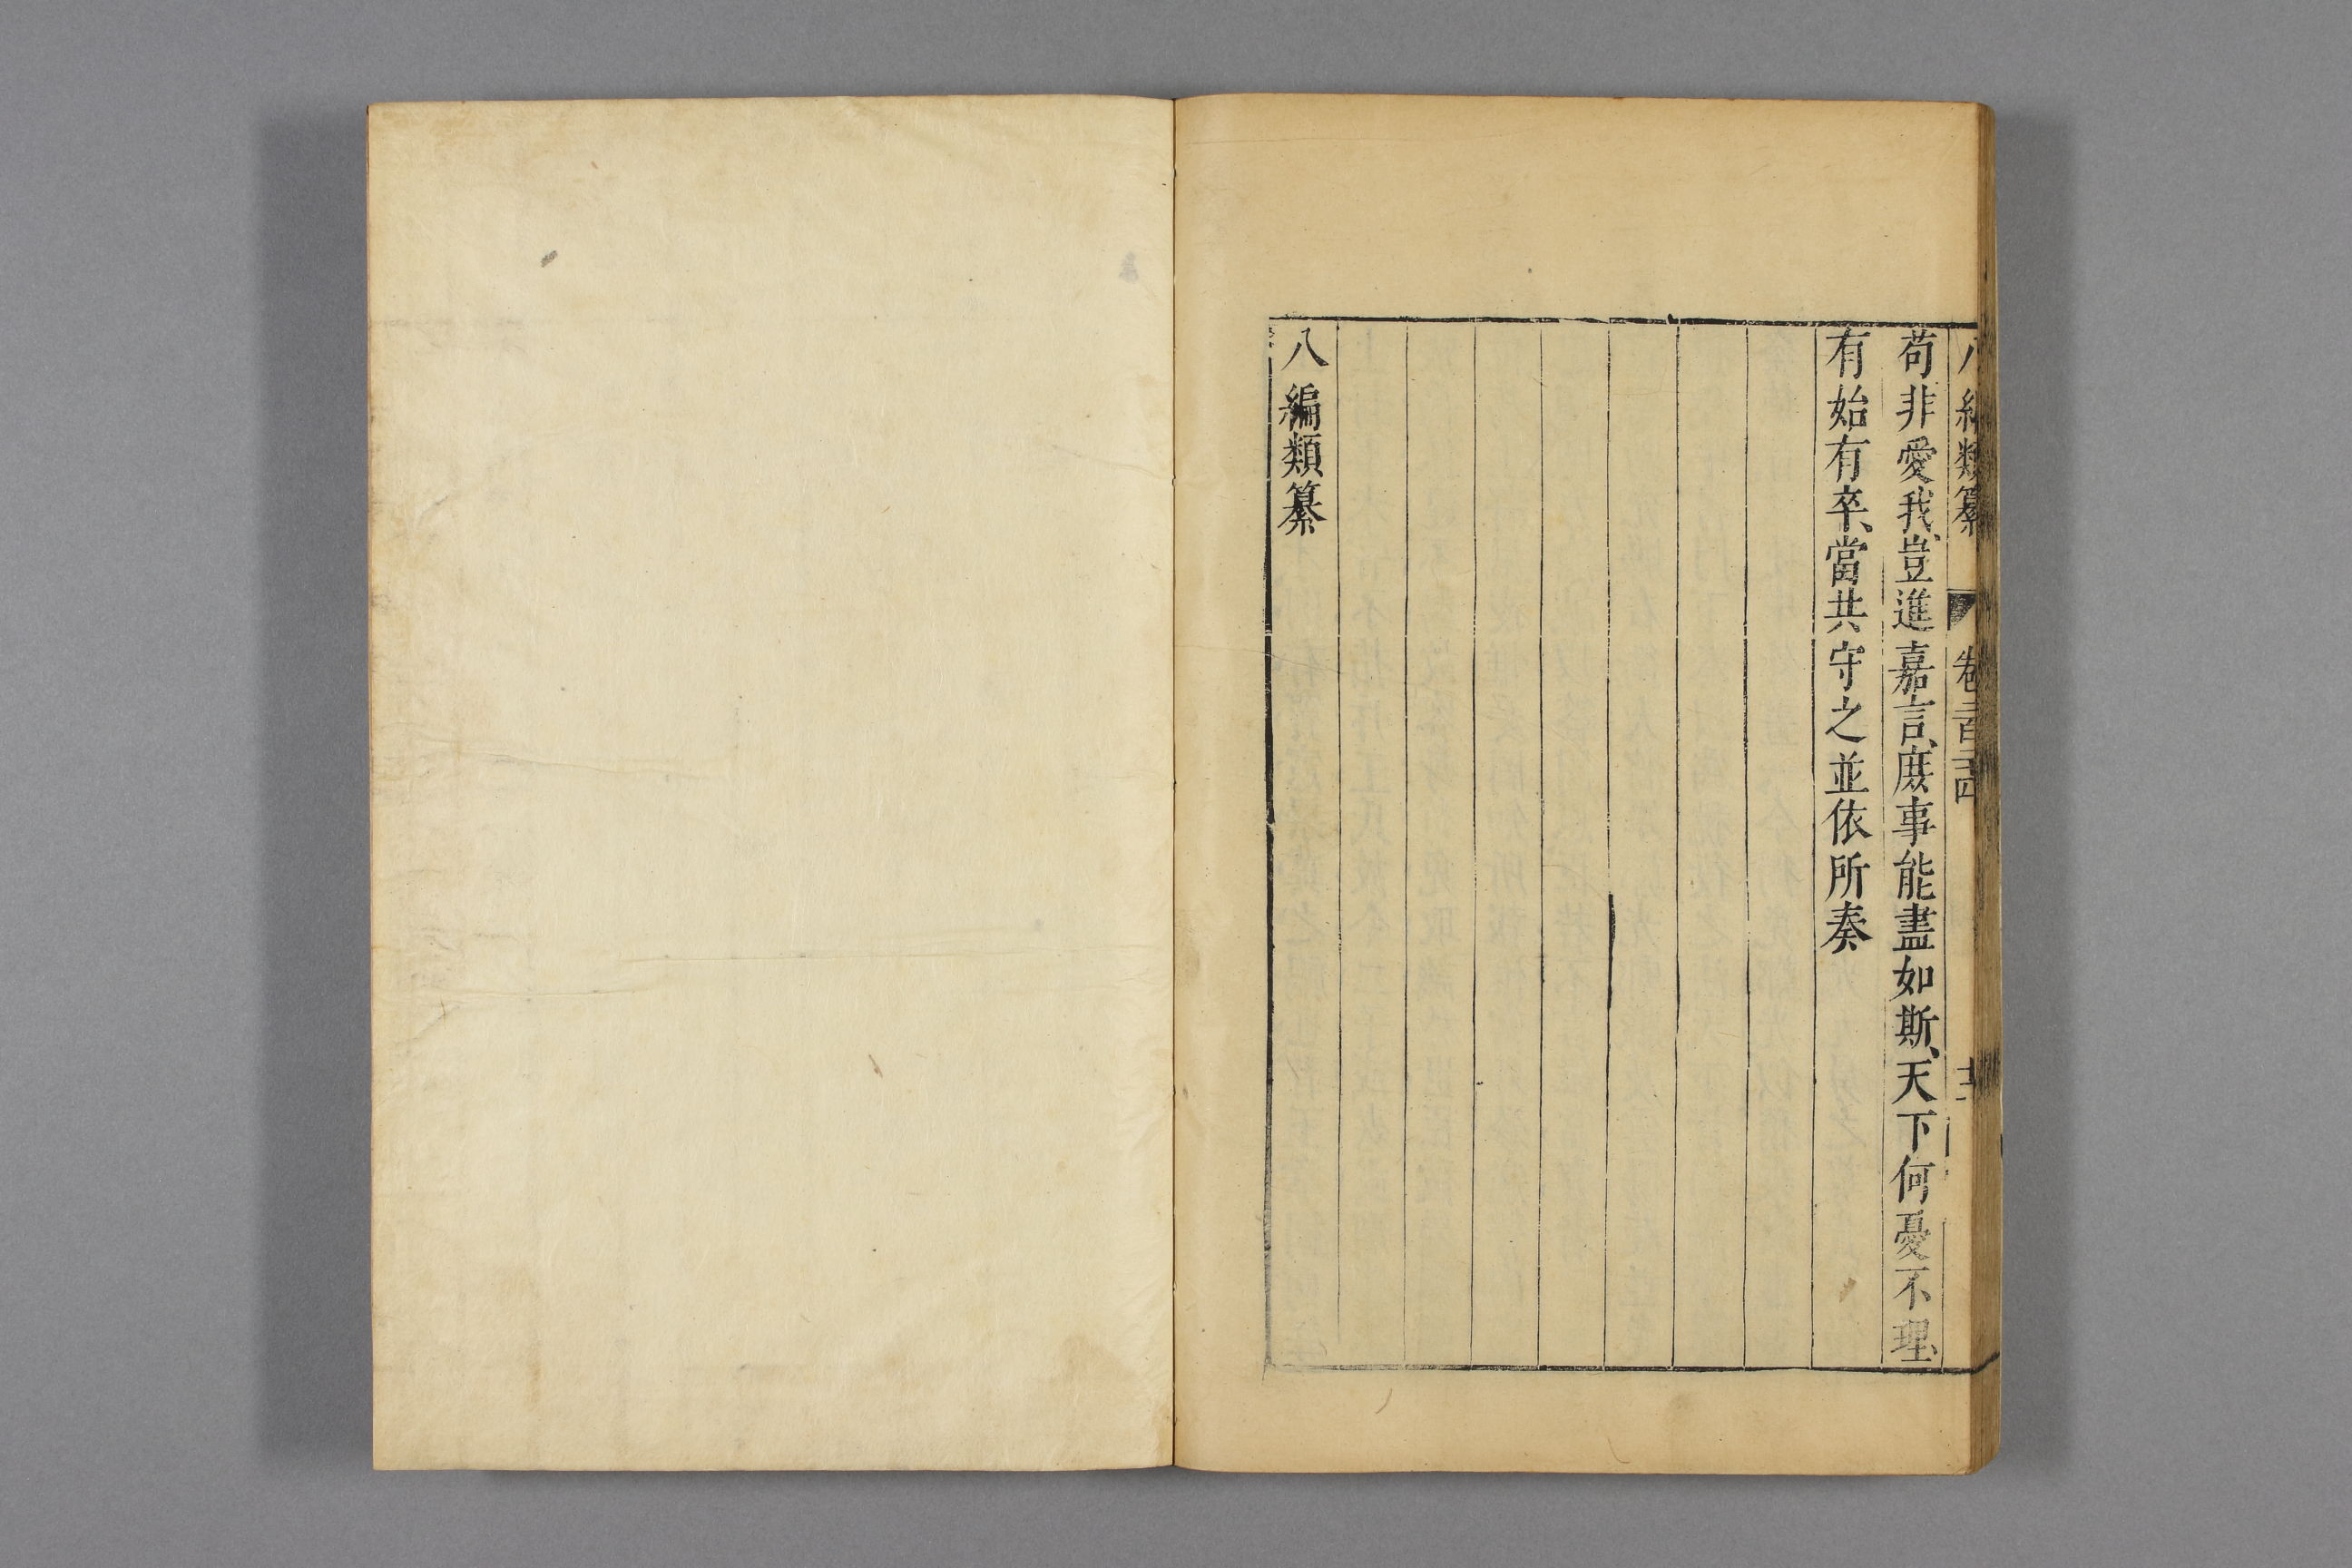 八編類纂 卷二百二十四 十二
苟非愛我、豈進嘉言、庶事能盡如斯、天下何憂不理、
有始有卒、當共守之並依所奏
八編類纂